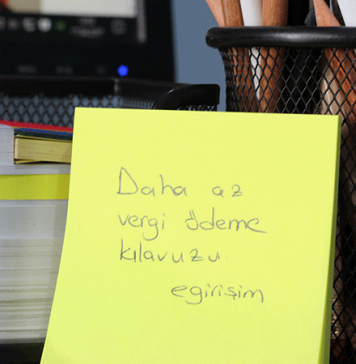 Daha az
vergi ödeme
kılavuzu.
egirişim